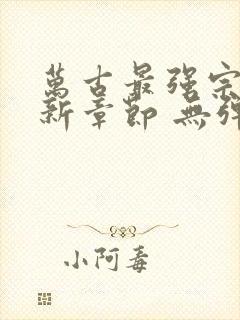 萬古最强宗
新章節 無彈
小阿毒